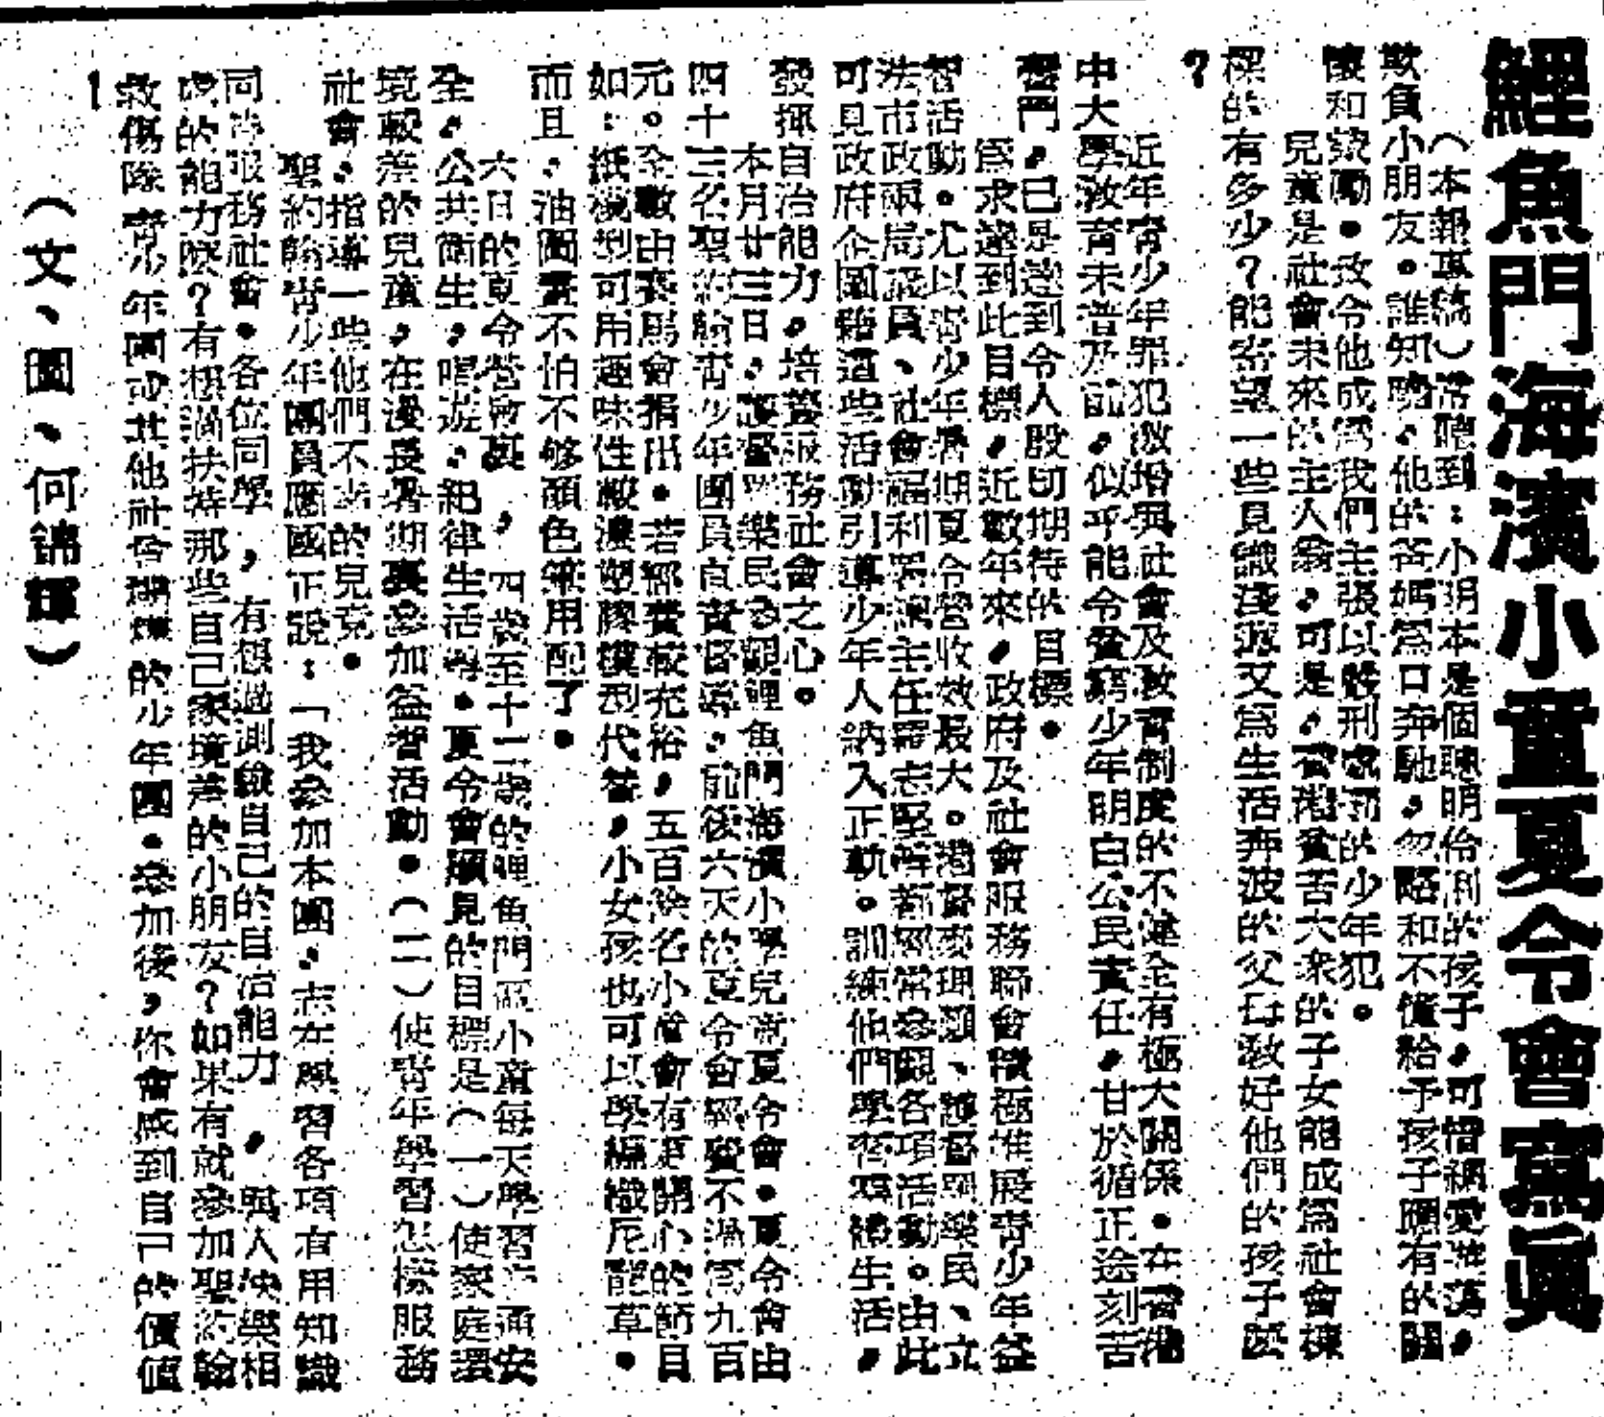 鯉魚門海濱小童夏令會寫真
(本報專稿)常聽到:小明本是個聰明伶俐的孩子,可惜頑愛遊蕩,
欺負小朋友。誰知曉,他的爸媽爲口奔馳,忽略和不懂給予孩子應有的關
懷和鼓勵。致令他成爲我們主張以嚴刑處罰的少年犯。
兒童是社會未來的主人翁,可是,香港貧苦大衆的子女能成爲社會棟
樑的有多少?能寄望一些見識淺薄又爲生活奔波的父母敎好他們的孩子麽
?
近年靑少年罪犯激增與社會及敎育制度的不健全有極大關係。在香港
中大學敎育未普及前,似乎能令貧窮少年明白公民責任,甘於循正途刻苦
奮鬥,已是達到令人殷切期待的目標。
爲求達到此目標,近數年來,政府及社會服務聯會積極推展靑少年益
智活動。尤以靑少年暑期夏令營收效最大。港督麥理浩、護督羅樂民、立
法市政兩局議員、社會福利署署主任霍志堅等都經常參觀各項活動。由此
可見政府企圖藉這些活動引導少年人納入正軌。訓練他們學習羣體生活,
發揮自治能力,培養服務社會之心。
本月廿三日,護督羅樂民參觀鯉魚門海濱小學兒童夏令會。夏令會由
四十三名聖約翰靑少年團員負責督導,前後六天的夏令會經費不過爲九百
元。全數由賽馬會捐出。若經費較充裕,五百餘名小童會有更開心的節目
如:紙模型可用趣味性較濃塑膠模型代替,小女孩也可以學編織尼龍草。
而且,油圖畫不怕不够顏色筆用配了。
六日的夏令營會與,四歲至十二歲的鯉魚門區小童每天學習交通安
全,公共衞生,唱遊,紀律生活等。夏令會顯見的目標是(一)使家庭環
境較差的兒童,在漫長暑期裏參加益智活動。(二)使靑年學習怎樣服務
社會,指導一些他們不識的兒童。
聖約翰靑少年團員應國正說:「我參加本團,志在學習各項有用知識
同時服務社會。各位同學,有想過測驗自己的自治能力,與人快樂相
處的能力麽?有想過扶持那些自己家境差的小朋友?如果有就參加聖約翰
救傷隊靑少年團或其他社會團體的少年團。參加後,你會感到自己的價值
」
(文、圖、何錦輝)